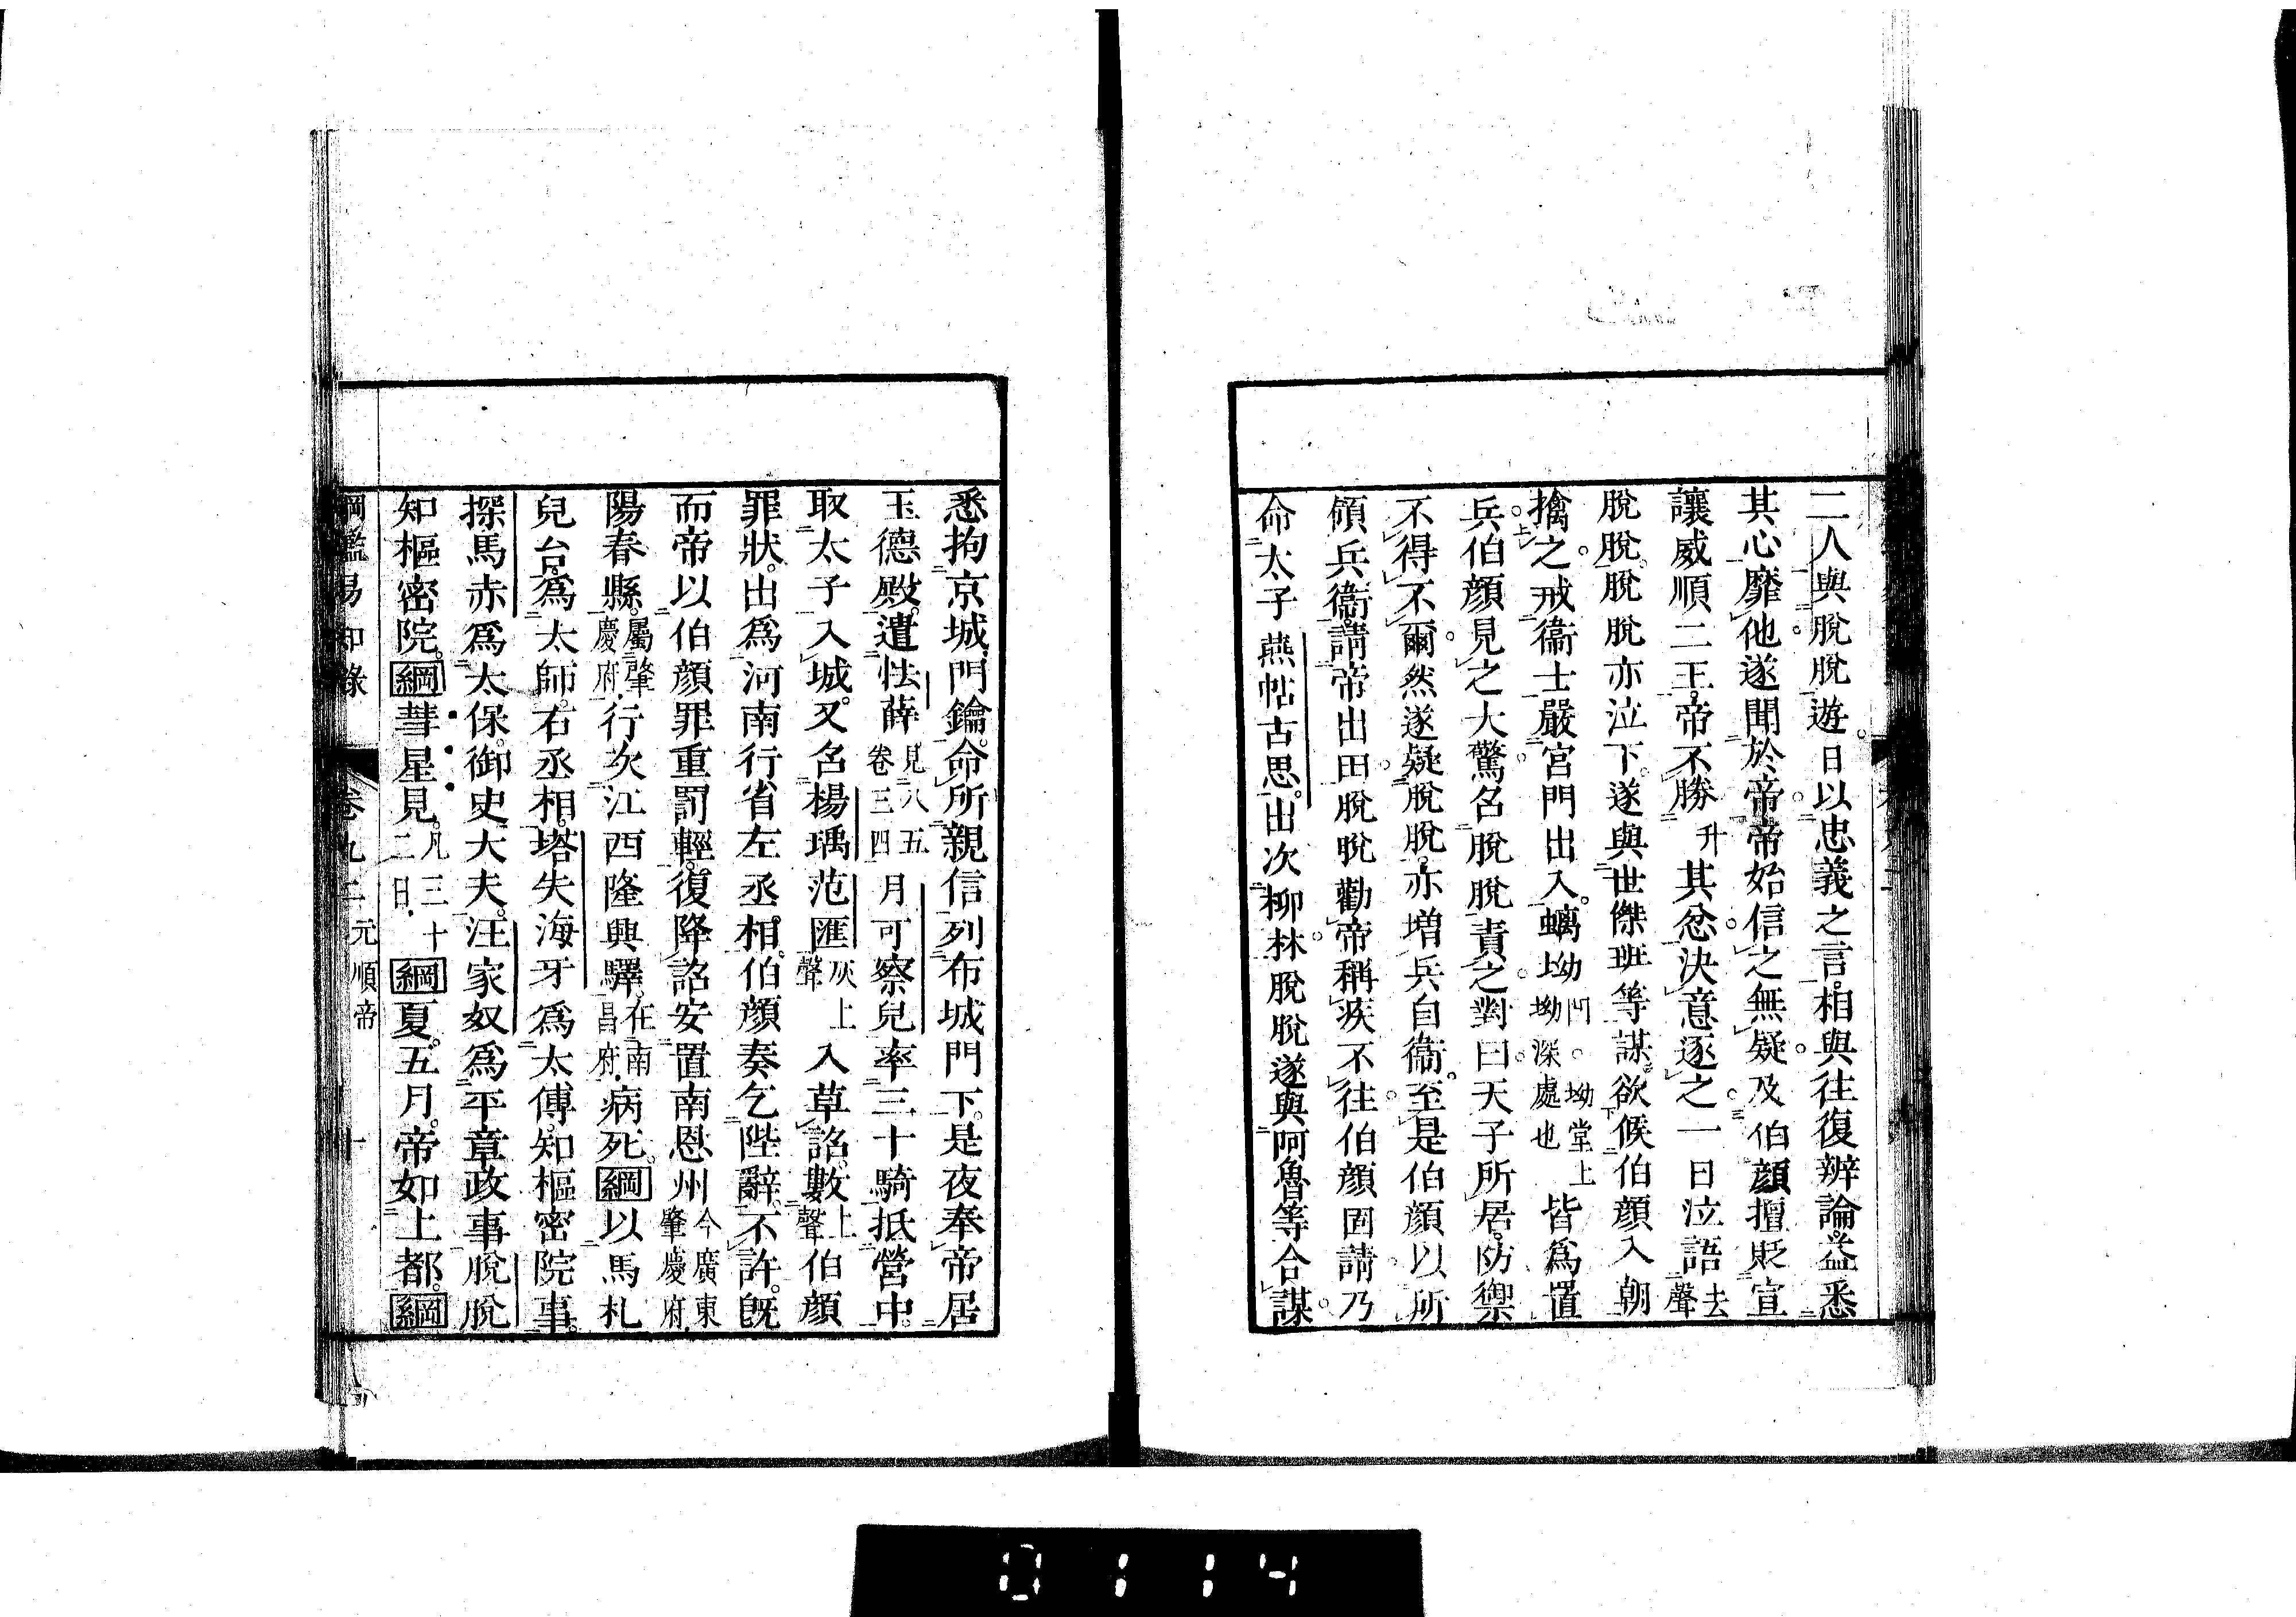 二人與脫脫遊。日以忠義之言。相與往復辨論。益悉
其心靡他。遂聞於帝。帝始信之無疑。及伯顏擅貶宣
讓威順二王。帝不勝升其忿。決意逐之。一日泣語去聲
脫脫。脫脫亦泣下。遂與世傑班等謀。欲候伯顏入朝
擒之。戒衞士嚴宮門出入。螭坳凹。坳堂上坳深處也皆爲置
兵。伯顏見之大驚。名脫脫責之。對曰。天子所居。防禦
不得不爾。然遂疑脫脫。亦增兵自衞。至是伯顏以所
領兵衞。請帝出田。脫脫勸帝稱疾不往。伯顏固請。乃
命太子燕帖古思。出次柳林。脫脫遂與阿魯等合謀。
悉拘京城門鑰。命所親信列布城門下。是夜奉帝居
玉德殿。遣怯薛見八五卷三四月可察兒率三十騎抵營中。
取太子入城。又名楊瑀范匯灰上聲入草詔。數上聲伯顏
罪狀。出爲河南行省左丞相。伯顏奏乞陛辭。不許。旣
而帝以伯顏罪重罰輕。復降詔安置南恩州今廣東肇慶府
陽春縣。屬肇慶府。行次江西隆興驛。在南昌府。病死。綱以馬札
兒台。爲太師。右丞相。塔失海牙爲太傅。知樞密院事。
探馬赤爲太保。御史大夫。汪家奴爲平章政事。脫脫
知樞密院。綱彗星見。凡三十二日。綱夏。五月。帝如上都。綱
綱鑑易知錄 卷九二 元順帝 十
0114